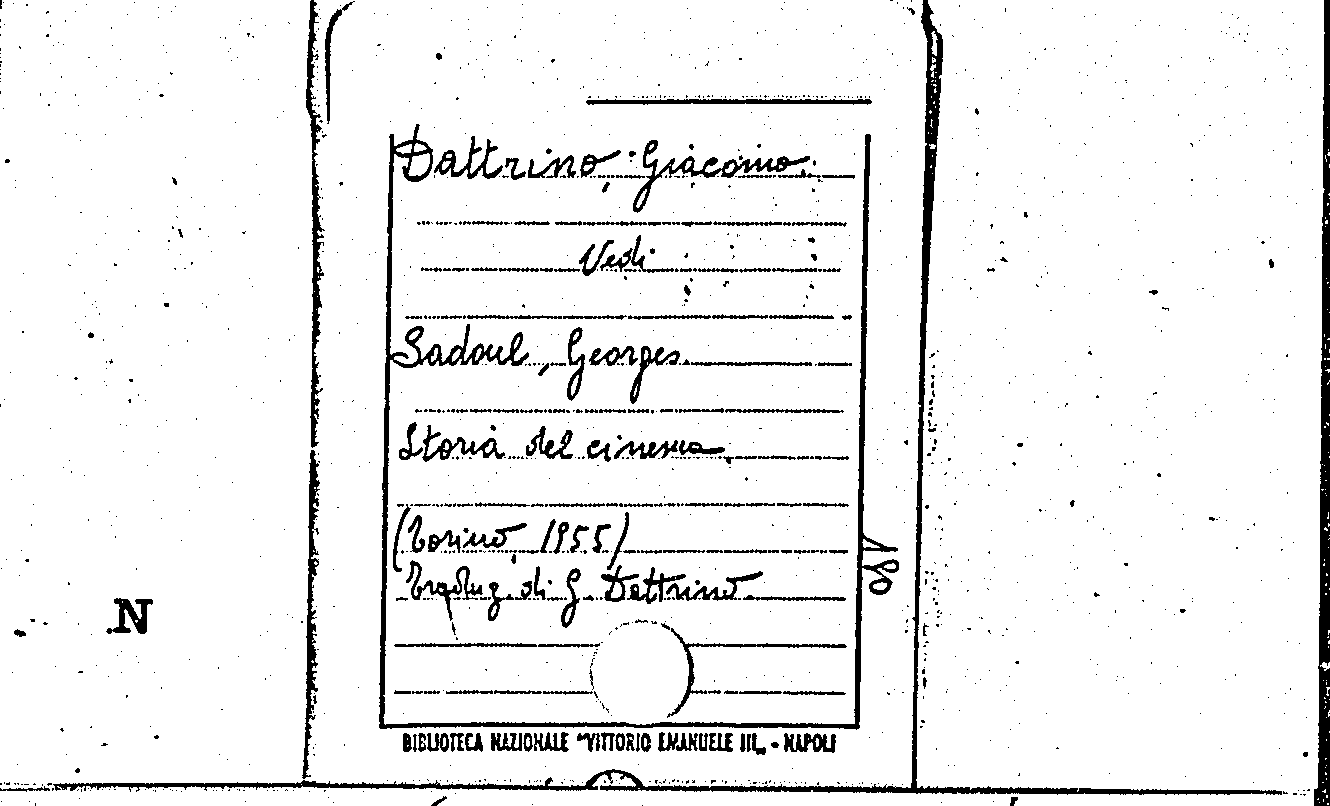 Dattrino, Giacomo.
Vedi
Sadoul, Georges.
Storia del cinema.
(Torino, 1955)
Traduz. di G. Dattrino.
180
N
BIBLIOTECA NAZIONALE "VITTORIO EMANUELE III„ - NAPOLI